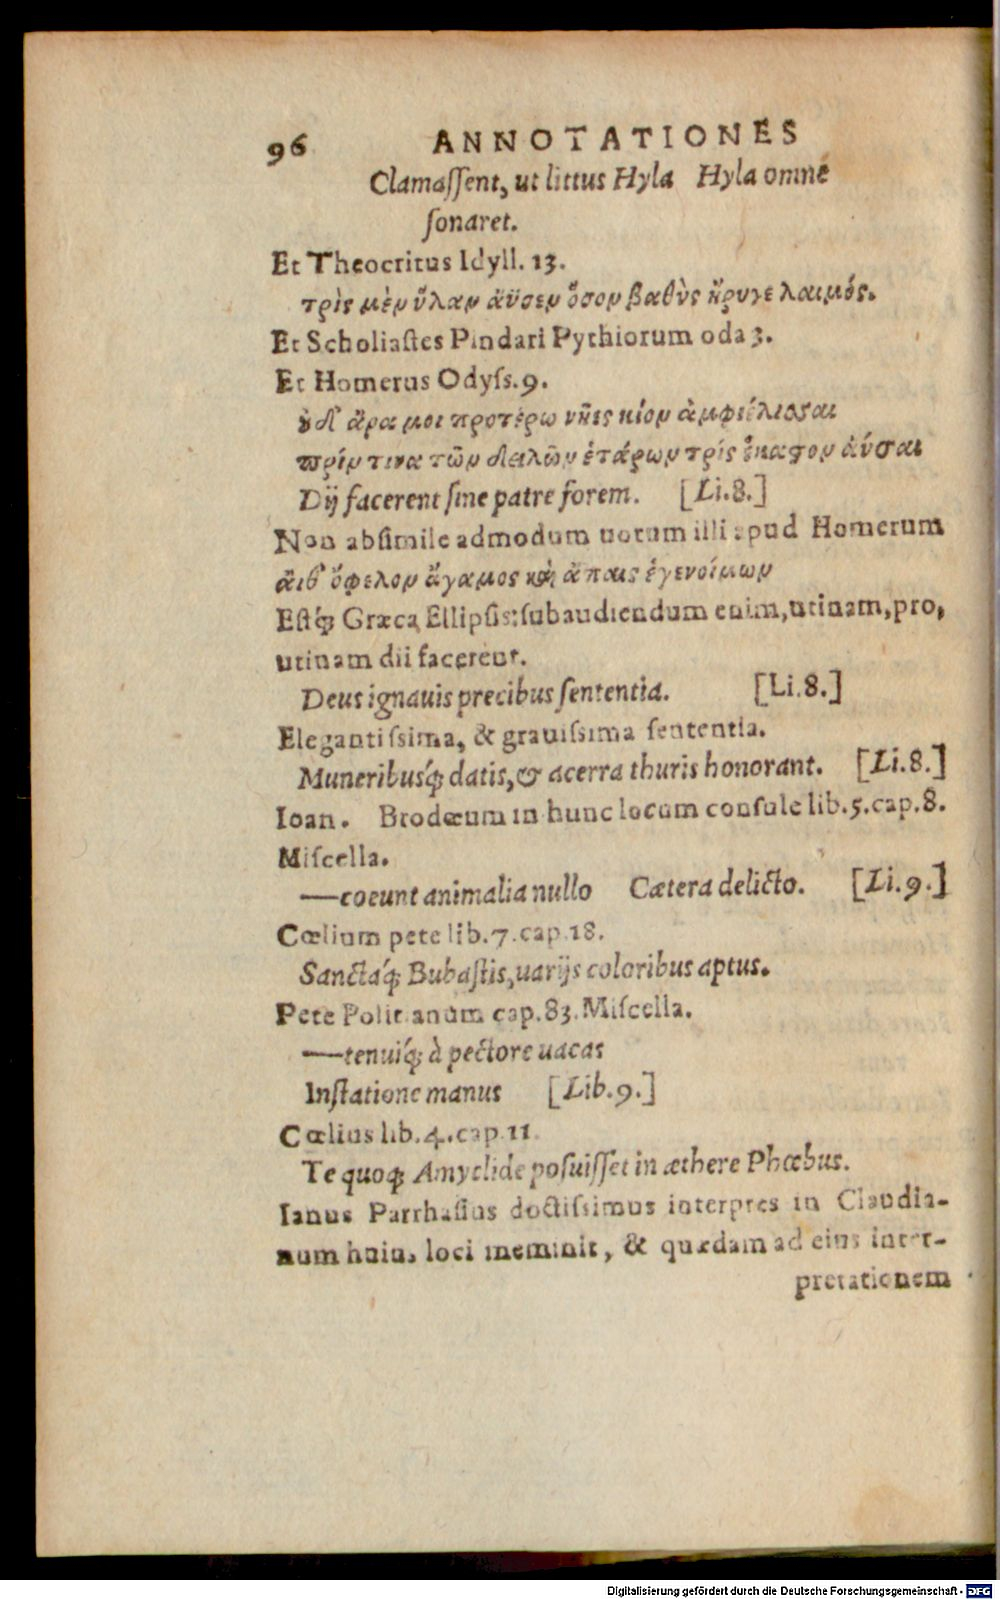 96 ANNOTATIONES
Clamaſſent, ut littus Hyla Hyla omne
ſonaret.
Et Theocritus Idyll. 13.
τρὶς μὲν ὕλαν ἄϋσεν ὅσον βαθὺς ἤρυγε λαιμός.
Et Scholiaſtes Pindari Pythiorum oda 3.
Et Homerus Odyſſ. 9.
οὐδ' ἄρα μοι προτέρω νῆες κίον ἀμφιέλισσαι
πρίν τινα τῶν δειλῶν ἑτάρων τρίς ἕκαστον ἀύσαι
Dij facerent ſine patre forem. [Li.8.]
Non abſimile admodum uotum illi apud Homerum
ἄιθ' ὄφελον ἄγαμος καὶ ἄπαις ἐγενοίμων
Eſtq́; Græca Ellipſis: ſubaudiendum enim, utinam, pro,
utinam dii facerent.
Deus ignauis precibus ſententia. [Li.8.]
Elegantiſsima, & grauiſsima ſententia.
Muneribusq́; datis, & acerra thuris honorant. [Li.8.]
Ioan. Brodæum in hunc locum conſule lib.5.cap.8.
Miſcella.
—coeunt animalia nullo Cætera delicto. [Li.9.]
Cœlium pete lib.7.cap.18.
Sanctaq́; Bubaſtis, uarijs coloribus aptus.
Pete Politianum cap.83. Miſcella.
—tenuiq́; à pectore uacas
Inſtatione manus [Lib.9.]
Cœlius lib.4.cap.11.
Te quoq; Amyclide poſuiſſet in æthere Phœbus.
Ianus Parrhaſius doctiſsimus interpres in Claudia-
num huius loci meminit, & quædam ad eius inter-
pretationem
Digitalisierung gefördert durch die Deutsche Forschungsgemeinschaft - DFG